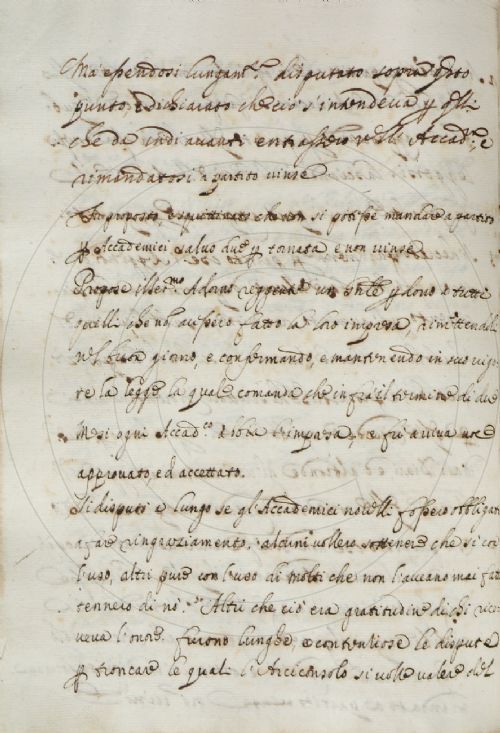 Ma essendosi lungam.te disputato sopra q.sto
punto, e dichiarato che ciò s'intendeva p q.lli
che da indi avanti entrassero nell' Accad.a e
rimandatosi a partito vinse
Fu proposto e squittinato che non si potesse mandare a partito
p Accademici salvo due p tornata e non vinse
Propose il ser.mo Adorno reggente un p dono a tutti
quelli che no' avessero fatto la loro impresa, rimettendoli
nel buon giorno, e confermando, e mantenendo in suo vigo
re la legge, la quale comanda che infra il termine di due
Mesi ogni Accad.co abbia l'impresa, e fu a viva voce
approvato, ed accettato.
Si disputò a lungo se gl'Accademici novelli fossero obbligati
a fare ringraziamento, alcuni vollero sostenere che si con
l'uso, altri pure con l'uso di molti che non l'aveano mai fatto
tennero di nò. Altri che ciò era gratitudine di chi rice
veva l'onore. furono lunghe, e contenziose le dispute
p troncare le quali l'Arciconsolo si volle valere del